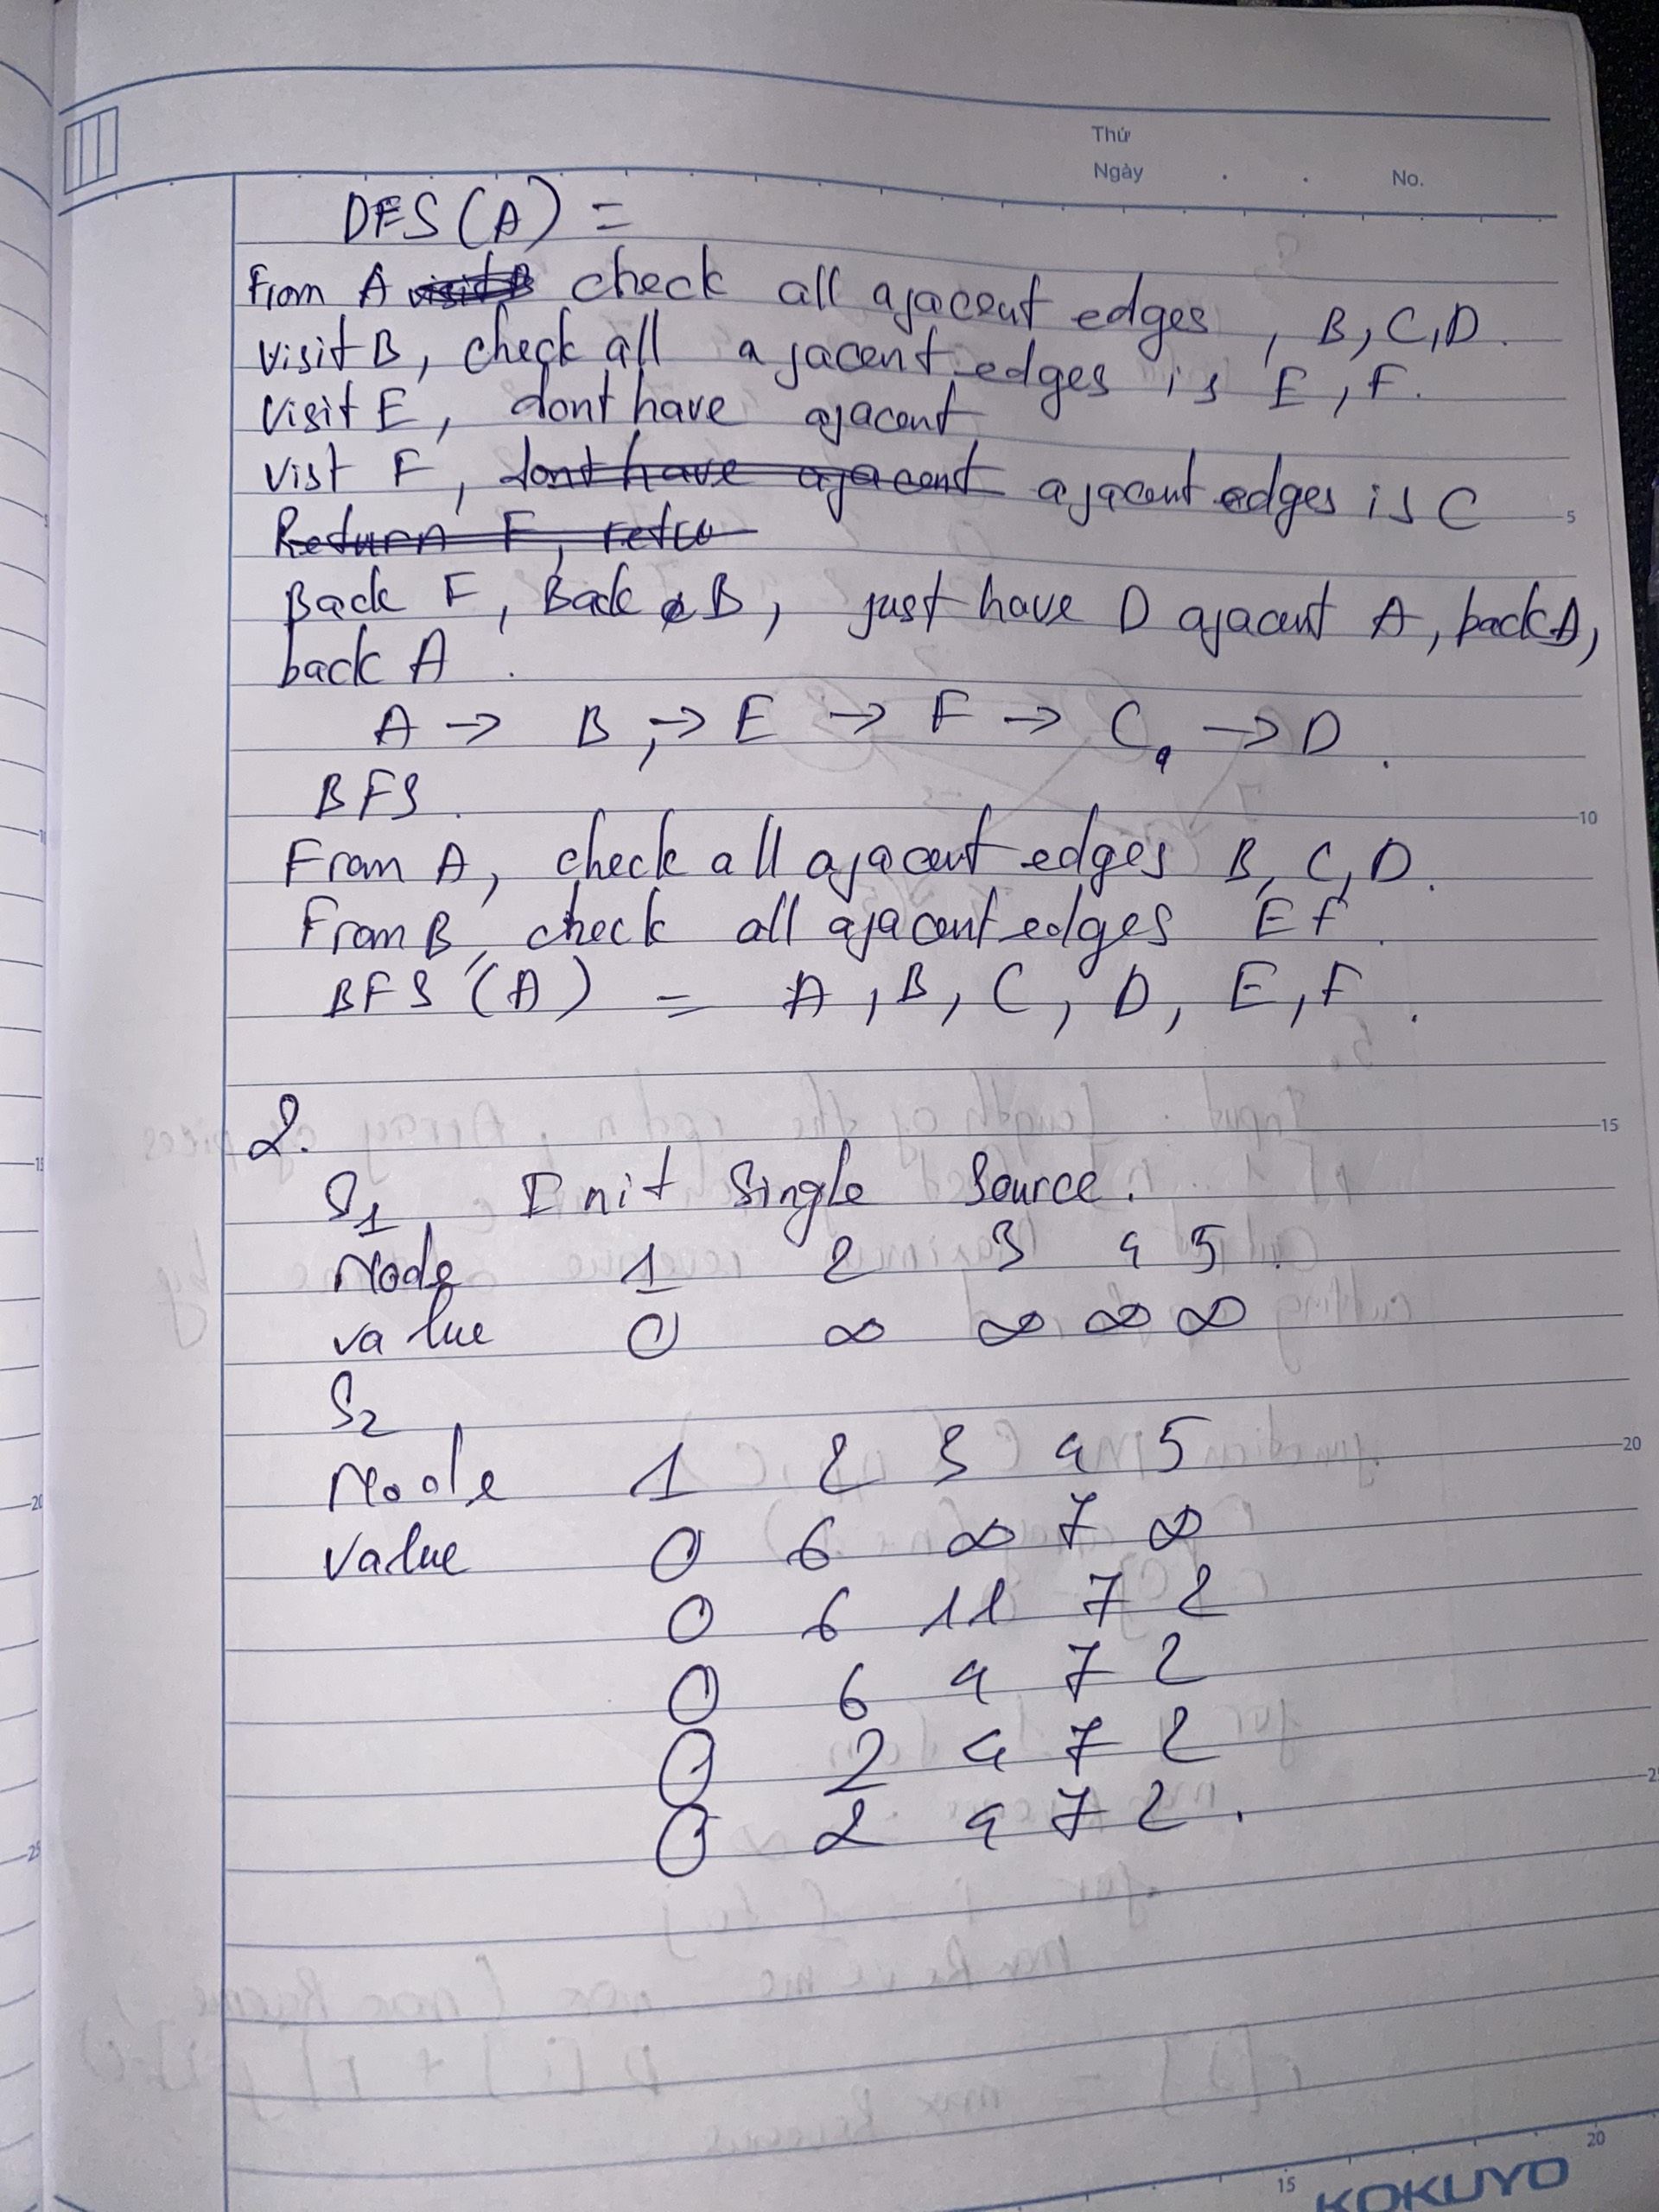 Thứ
Ngày . . No.
DFS(A) =
From A check all ajacent edges, B, C, D.
visit B, check all ajacent edges is E, F.
visit E, dont have ajacent
vist F, dont have ajacent ajacent edges is C
Return F, retu
Back F, Back B, just have D ajacent A, back A,
back A.
A → B, → E → F → C, → D.
BFS.
From A, check all ajacent edges B, C, D.
From B, check all ajacent edges E F.
BFS (A) = A, B, C, D, E, F.
2.
S1 Init Single Source.
Node 1 2 3 4 5.
value 0 ∞ ∞ ∞ ∞
S2
Node 1 2 3 4 5
Value 0 6 ∞ 7 ∞
0 6 11 7 2
0 6 4 7 2
0 2 4 7 2
0 2 4 7 2.
5
10
15
20
25
15
20
KOKUYO